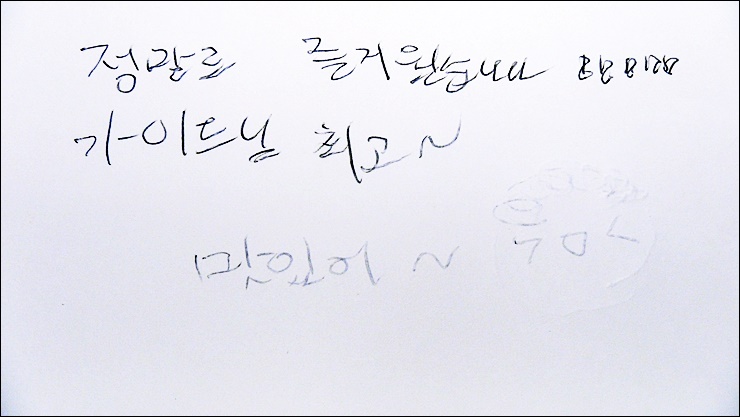 정말로 즐거웠습니다
가이드님 최고~
맛있어~